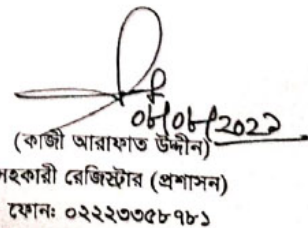 ০৮/০৮/2022
(কাজী আরাফাত উদ্দীন)
সহকারী রেজিস্ট্রার (প্রশাসন)
ফোন: ০২২২৩৩৫৮৭৮১